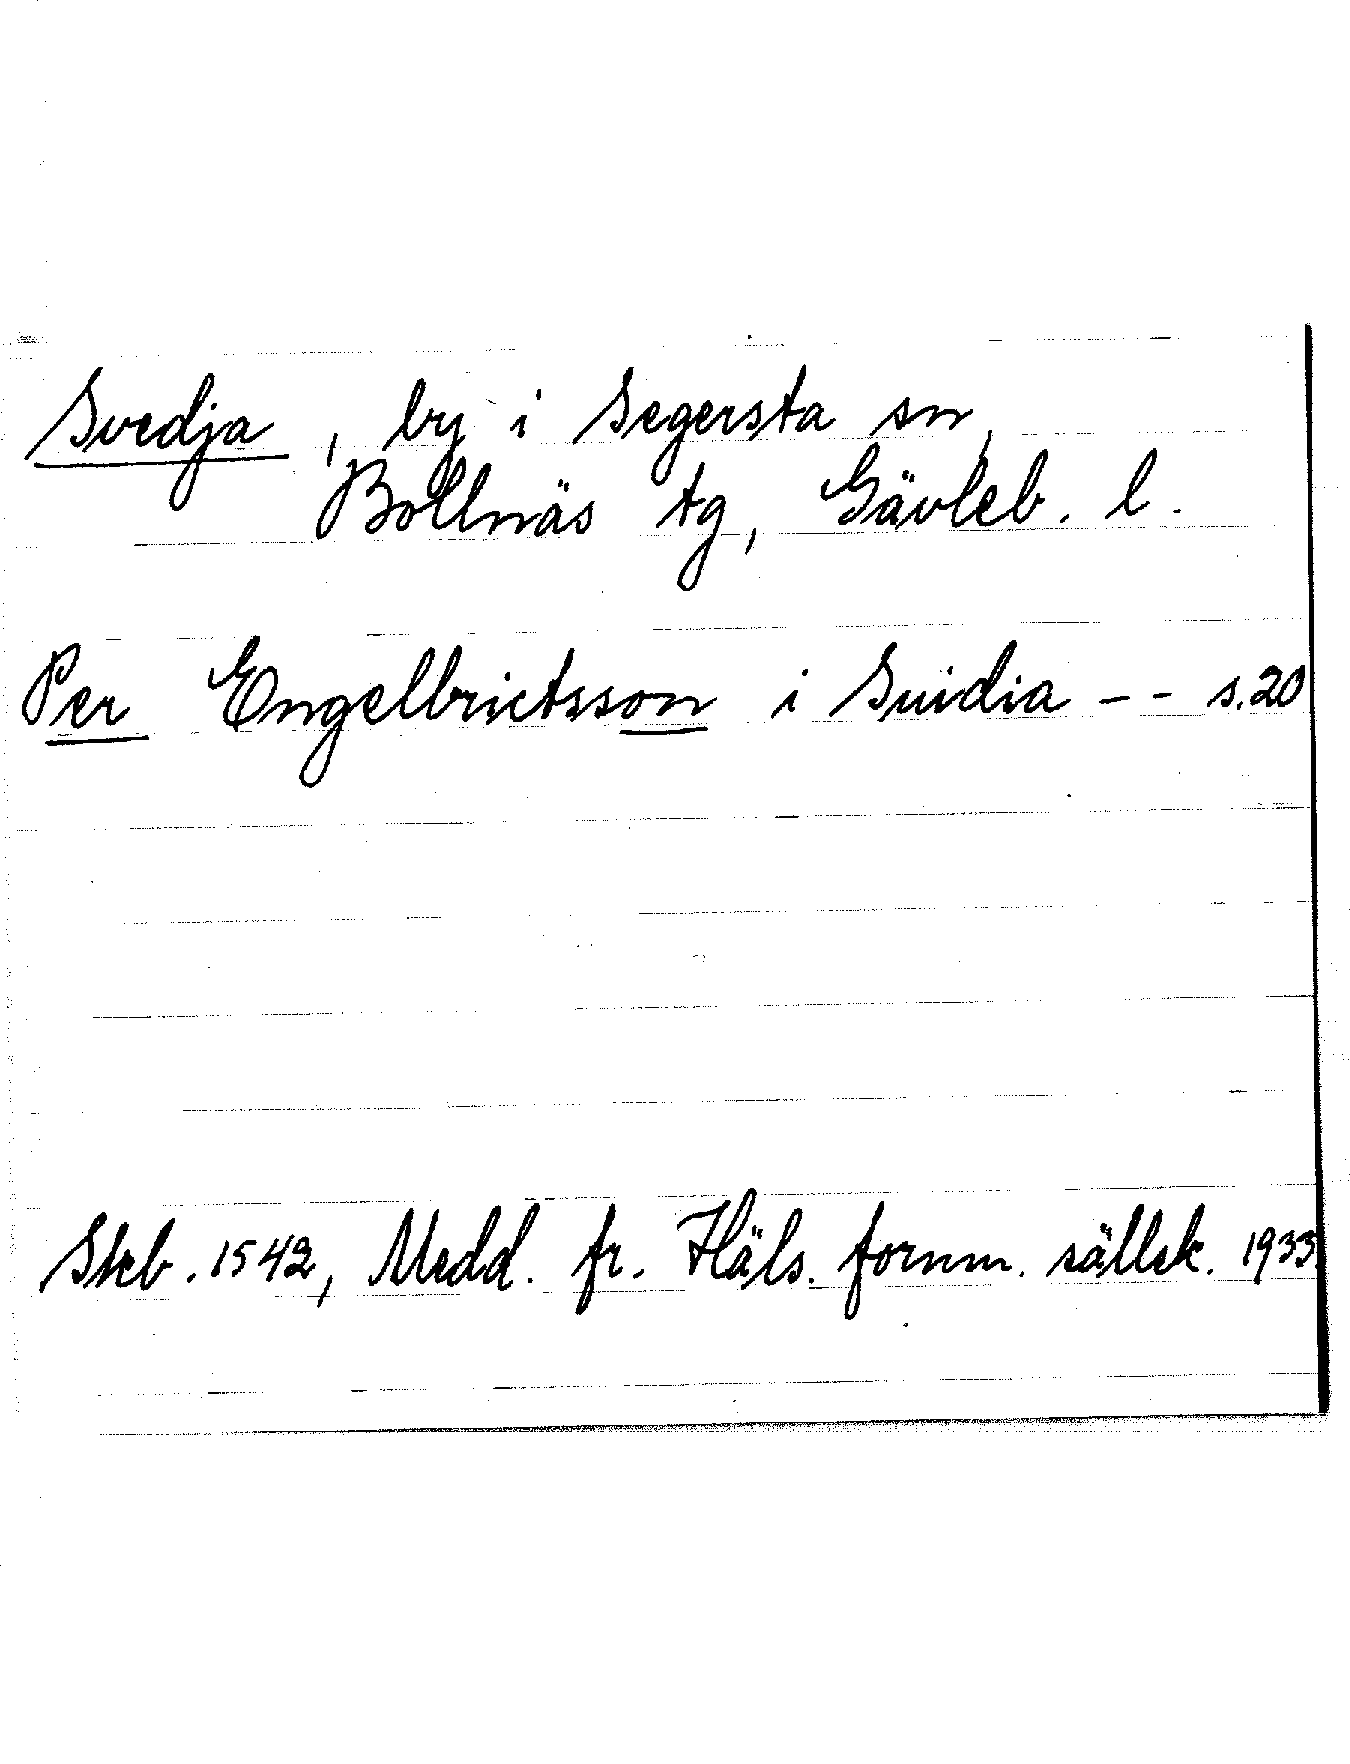 Svedja, by i Segersta sn,
Bollnäs tg, Gävleb. l.
Per Engelbrictsson i Suidia -- s.20
Skb. 1542, Medd. fr. Häls. fornm. sällsk. 1933.